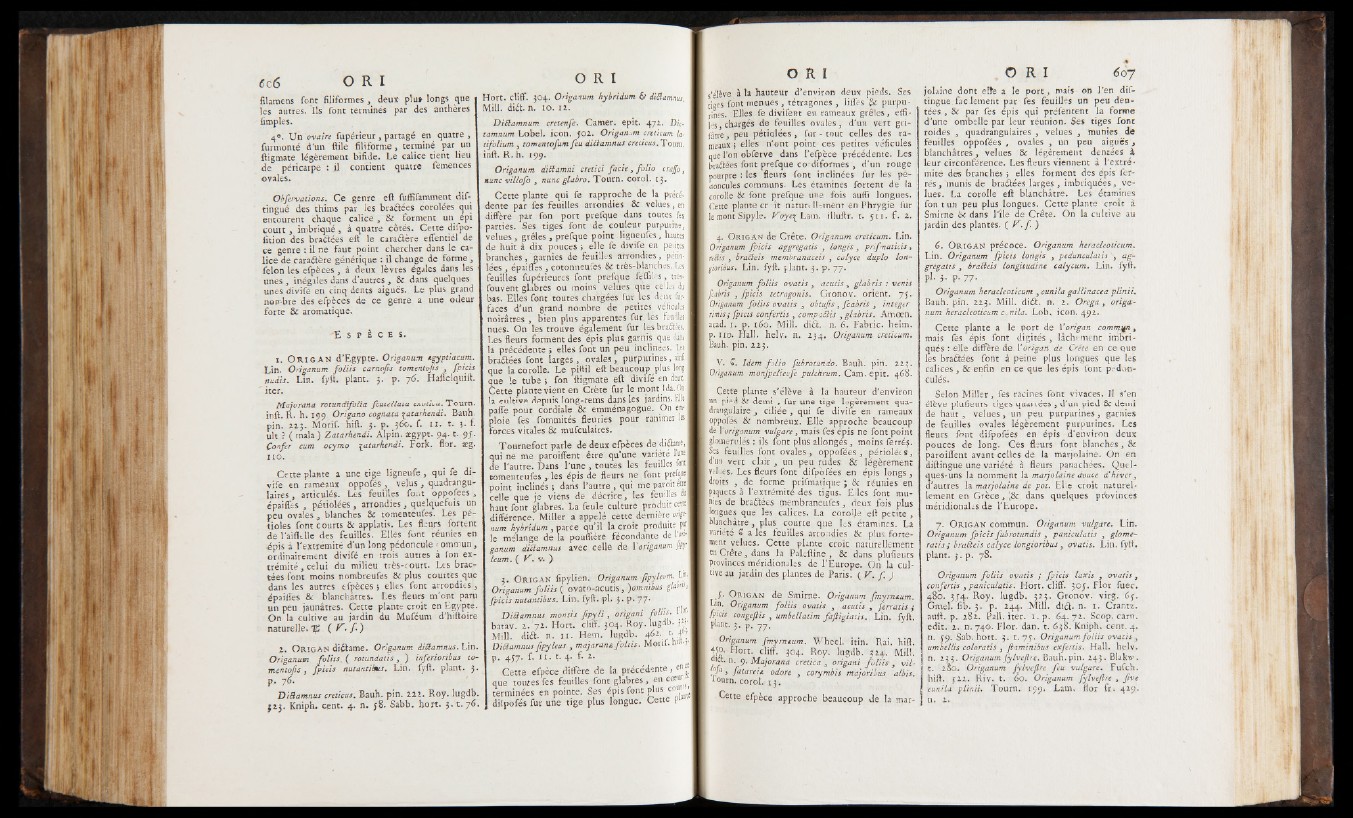 606 ORI
filamens sont filiformes, deux plus longs que
les autres. Ils sont terminés par des anthères
simples.
4°. Un ovaire supérieur, partagé en quatre,
surmonté d'un stile filiforme, terminé par un
stigmate légèrement bifide. Le calice tient lieu
de péricarpe : il contient quatre semences
ovales.
Observations. Ce genre est suffisamment dis-
tingué des thims par les bractées corolées qui
entourent chaque calice, & forment un épi
court, imbriqué, à quatre côtés. Cette dispo-
sition des bractées est le caractère essentiel de
ce genre : il ne faut point chercher dans le ca-
lice de caractère générique : il change de forme,
selon les espèces, à deux lèvres égales dans les
unes, inégales dans d'autres, & dans quelques
unes divisé en cinq dents aiguës. Le plus grand
nombre des espèces de ce genre a une odeur
forte & aromatique.
ESPÈCES.
1. ORIGAN d'Egypte. Origanum ægyptiacum.
Lin. Origanum foliis carnosis tomentosis, spicis
nudis. Lin. syst. plant. 3. p. 76. Hasselquist.
iter.
Majorana rotundifolia scutellata exotica. Tourn.
inst. R. h. 199. Origano cognata zatarhendi. Bauh
pin. 223. Moris. hist. 3. p. 360. s. 11. t. 3. f.
ult ? ( mala ) Zatarhendi. Alpin. ægypt. 94. t. 95.
Confer cum ocymo zatarhendi. Forsk. flor. æg.
110.
Cette plante a une tige ligneuse, qui se di-
vise en rameaux opposés, velus, quadrangu-
laires, articulés. Les feuilles sont opposées,
épaisses, pétiolées, arrondies, quelquefois un
peu ovales, blanches & tomenteuses. Les pé-
tioles sont courts & applatis. Les fleurs sortent
de l'aisselle des feuilles. Elles sont réunies en
épis à l'extrémité d'un long pédoncule commun,
ordinairement divisé en trois autres à son ex-
trémité, celui du milieu très-court. Les brac-
tées sont moins nombreuses & plus courtes que
dans les autres espèces ; elles sont arrondies,
épaisses & blanchâtres. Les fleurs m'ont paru
un peu jaunâtres. Cette plante croît en Egypte.
On la cultive au jardin du Muséum d'histoire
naturelle. ( V. s. )
2. ORIGAN dictame. Origanum dictamnus. Lin.
Origanum foliis ( rotundatis, ) inferioribus to-
mentosis, spicis nutantibus. Lin. syst. plant. 3.
p. 76.
Dictamnus creticus. Bauh. pin. 222. Roy. lugdb.
323. Kniph. cent. 4. n. 58. Sabb. hort. 3. t. 76.
ORI
Hort. cliff. 304. Origanum hybridum & dictamnus,
Mill. dict. n. 10. 12.
Dictamnum cretense. Camer. epit. 472. Dic-
tamnum Lobel. icon. 502. Origanum creticum la-
tifolium, tomentosum seu dictamnus creticus. Tourn.
inst. R. h. 199.
Origanum dictamni cretici facie, folio crasso,
nunc villoso, nunc glabro. Tourn. corol. 13.
Cette plante qui se rapproche de la précé-
dente par ses feuilles arrondies & velues, en
diffère par son port presque dans toutes ses
parties. Ses tiges sont de couleur purpurine,
velues, grêles, presque point ligneuses, hautes
de huit à dix pouces ; elle se divise en petites
branches, garnies de feuilles arrondies, pétio-
lées, épaisses, cotonneuses & très-blanches. Les
feuilles supérieures sont presque sessiles, très-
souvent glabres ou moins velues que celles du
bas. Elles sont toutes chargées sur les deux sur-
faces d'un grand nombre de petites vésicules
noirâtres, bien plus apparentes sur les feuilles
nues. On les trouve également sur les bractées.
Les fleurs forment des épis plus garnis que dans
la précédente ; elles sont un peu inclinées. Les
bractées sont larges, ovales, purpurines, ainsi
que la corolle. Le pistil est beaucoup plus long
que le tube ; son stigmate est divisé en deux.
Cette plante vient en Crète sur le mont Ida. On
la cultive depuis long-tems dans les jardins. Elle
passe pour cordiale & emménagogue. On em-
ploie ses sommités fleuries pour ranimer les
forces vitales & musculaires.
Tournefort parle de deux espèces de dictame,
qui ne me paroissent être qu'une variété l'une
de l'autre. Dans l'une, toutes les feuilles sont
tomenteuses, les épis de fleurs ne sont presque
point inclinés ; dans l'autre, qui me paroît être
celle que je viens de décrire, les feuilles du
haut sont glabres. La seule culture produit cette
différence. Miller a appelé cette dernière origa-
num hybridum, parce qu'il la croit produite par
le mélange de la poussière fécondante de l'ori-
ganum dictamnus avec celle de l'origanum sipy-
leum. ( V. v. )
3. ORIGAN sipylien. Origanum sipyleum. Lin.
Origanum foliis ( ovato-acutis, ) omnibus glabris,
spicis nutantibus. Lin. syst. pl. 3. p. 77.
Dictamnus montis sipyli, origani foliis. Flor.
batav. 2. 72. Hort. cliff. 304. Roy. lugdb. 323.
Mill. dict. n. 11. Hem. lugdb. 462. t. 463.
Dictamnus sipyleus, majoranæ foliis. Moris. hist. 3.
p. 457. s. 11. t. 4. f. 2.
Cette espèce diffère de la précédente, en ce
que toutes ses feuilles sont glabres, en cœur &
terminées en pointe. Ses épis sont plus courts,
disposés sur une tige plus longue. Cette plante
ORI
s'élève à la hauteur d'environ deux pieds. Ses
tiges sont menues, tétragones, lisses & purpu-
rines. Elles se divisent en rameaux grêles, effi-
lés, chargés de feuilles ovales, d'un vert gri-
sâtre, peu pétiolées, sur-tout celles des ra-
meaux ; elles n'ont point ces petites vésicules
que l'on observe dans l'espèce précédente. Les
bractées sont presque cordiformes, d'un rouge
pourpre : les fleurs sont inclinées sur les pé-
doncules communs. Les étamines sortent de la
corolle & sont presque une fois aussi longues.
Cette plante croît naturellement en Phrygie sur
le mont Sipyle. Voyez Lam. illustr. t. 511. f. 2.
4. ORIGAN de Crête. Origanum creticum. Lin.
Origanum spicis aggregatis, longis, prismaticis,
rectis, bracteis membranaceis, calyce duplo lon-
gioribus. Lin. syst. plant. 3. p. 77.
Origanum foliis ovatis, acutis, glabris : venis
scabris, spicis tetragonis. Gronov. orient. 75.
Origanum foliis ovatis, obtusis, scabris, integer-
rimis; spicis confertis, compactis, glabris. Amœn.
acad. 1. p. 160. Mill. dict. n. 6. Fabric. helm.
p. 110. Hall. helv. n. 234. Origanum creticum.
Bauh. pin. 223.
V. Idem folio subrotundo. Bauh. pin. 223.
Origanum monspeliense pulchrum. Cam. epit. 468.
Cette plante s'élève à la hauteur d'environ
un pied & demi, sur une tige légèrement qua-
drangulaire, ciliée, qui se divise en rameaux
opposés & nombreux. Elle approche beaucoup
de l'origanum vulgare, mais ses épis ne sont point
glomerulés : ils sont plus allongés, moins serrés.
Ses feuilles sont ovales, opposées, pétiolées,
d'un vert clair, un peu rudes & légèrement
velues. Les fleurs sont disposées en épis longs,
droits, de forme prismatique ; & réunies en
paquets à l'extrémité des tiges. Elles sont mu-
nies de bractées membraneuses, deux fois plus
longues que les calices. La corolle est petite,
blanchâtre, plus courte que les étamines. La
variété a les feuilles arrondies & plus forte-
ment velues. Cette plante croît naturellement
en Crête, dans la Palestine, & dans plusieurs
provinces méridionales de l'Europe. On la cul-
tive au jardin des plantes de Paris. ( V. s. )
5. ORIGAN de Smirne. Origanum smyrneum.
Lin. Origanum foliis ovatis, acutis, serratis ;
spicis congestis, umbellatim fastigiatis. Lin. syst.
plant. 3. p. 77.
Origanum smyrneum. Wheel. itin. Rai. hist.
450. Hort. cliff. 304. Roy. lugdb. 324. Mill.
dict. n. 9. Majorana cretica, origani foliis, vil-
losa, satureiæ odore, corymbis majoribus albis.
Tourn. corol. 13.
Cette espèce approche beaucoup de la mar-
ORI 607
jolaine dont elle a le port, mais on l'en dis-
tingue facilement par ses feuilles un peu den-
tées, & par ses épis qui présentent la forme
d'une ombelle par leur réunion. Ses tiges sont
roides, quadrangulaires, velues, munies de
feuilles opposées, ovales, un peu aiguës,
blanchâtres, velues & légèrement dentées à
leur circonférence. Les fleurs viennent à l'extré-
mité des branches ; elles forment des épis ser-
rés, munis de bractées larges, imbriquées, ve-
lues. La corolle est blanchâtre. Les étamines
sont un peu plus longues. Cette plante croît à
Smirne & dans l'île de Crête. On la cultive au
jardin des plantes. ( V. s. )
6. ORIGAN précoce. Origanum heracleoticum.
Lin. Origanum spicis longis, pedunculatis, ag-
gregatis, bracteis longitudine calycum. Lin. syst.
pl. 3. p. 77.
Origanum heracleoticum, cunila gallinacea plinii.
Bauh. pin. 223. Mill. dict. n. 2. Orega, origa-
num heracleoticum cunila. Lob. icon. 492.
Cette plante a le port de l'origan commun,
mais ses épis sont digités, lâchement imbri-
qués : elle diffère de l'origan de Crête en ce que
les bractées sont à peine plus longues que les
calices, & enfin en ce que les épis sont pédon-
culés.
Selon Miller, ses racines sont vivaces. Il s'en
élève plusieurs tiges quarrées, d'un pied & demi
de haut, velues, un peu purpurines, garnies
de feuilles ovales légèrement purpurines. Les
fleurs sont disposées en épis d'environ deux
pouces de long. Ces fleurs sont blanches, &
paroissent avant celles de la marjolaine. On en
distingue une variété à fleurs panachées. Quel-
ques-uns la nomment la marjolaine douce d'hiver,
d'autres la marjolaine de pot. Elle croît naturel-
lement en Grèce, & dans quelques provinces
méridionales de l'Europe.
7. ORIGAN commun. Origanum vulgare. Lin.
Origanum spicis subrotundis, paniculatis, glome-
ratis ; bracteis calyce longioribus, ovatis. Lin. syst.
plant. 3. p. 78.
Origanum foliis ovatis ; spicis laxis, ovatis,
confertis, paniculatis. Hort. cliff. 305. Flor suec.
480. 514. Roy. lugdb. 323. Gronov. virg. 65.
Gmel. sib. 3. p. 244. Mill. dict. n. 1. Crantz.
austr. p. 282. Pall. iter. 1. p. 64. 72. Scop. carn.
edit. 2. n. 740. Flor. dan. t. 638. Kniph. cent. 4.
n. 59. Sab. hort. 3. t. 75. Origanum foliis ovatis,
umbellis coloratis, staminibus exsertis. Hall. helv.
n. 233. Origanum sylvestre. Bauh. pin. 243. Blakw.
t. 280. Origanum sylvestre seu vulgare. Fusch.
hist. 522. Riv. t. 60. Origanum sylvestre, sive
cunila plinii. Tourn. 199. Lam. flor fr. 429.
n. 2.